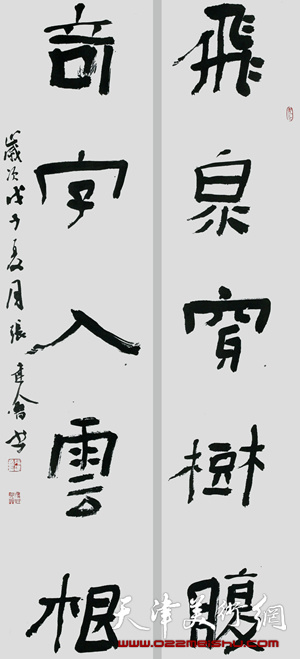 飛泉穿樹腹
奇字入雲根
歲次戊子夏月張建會書
天津美術網
www.022meishu.com